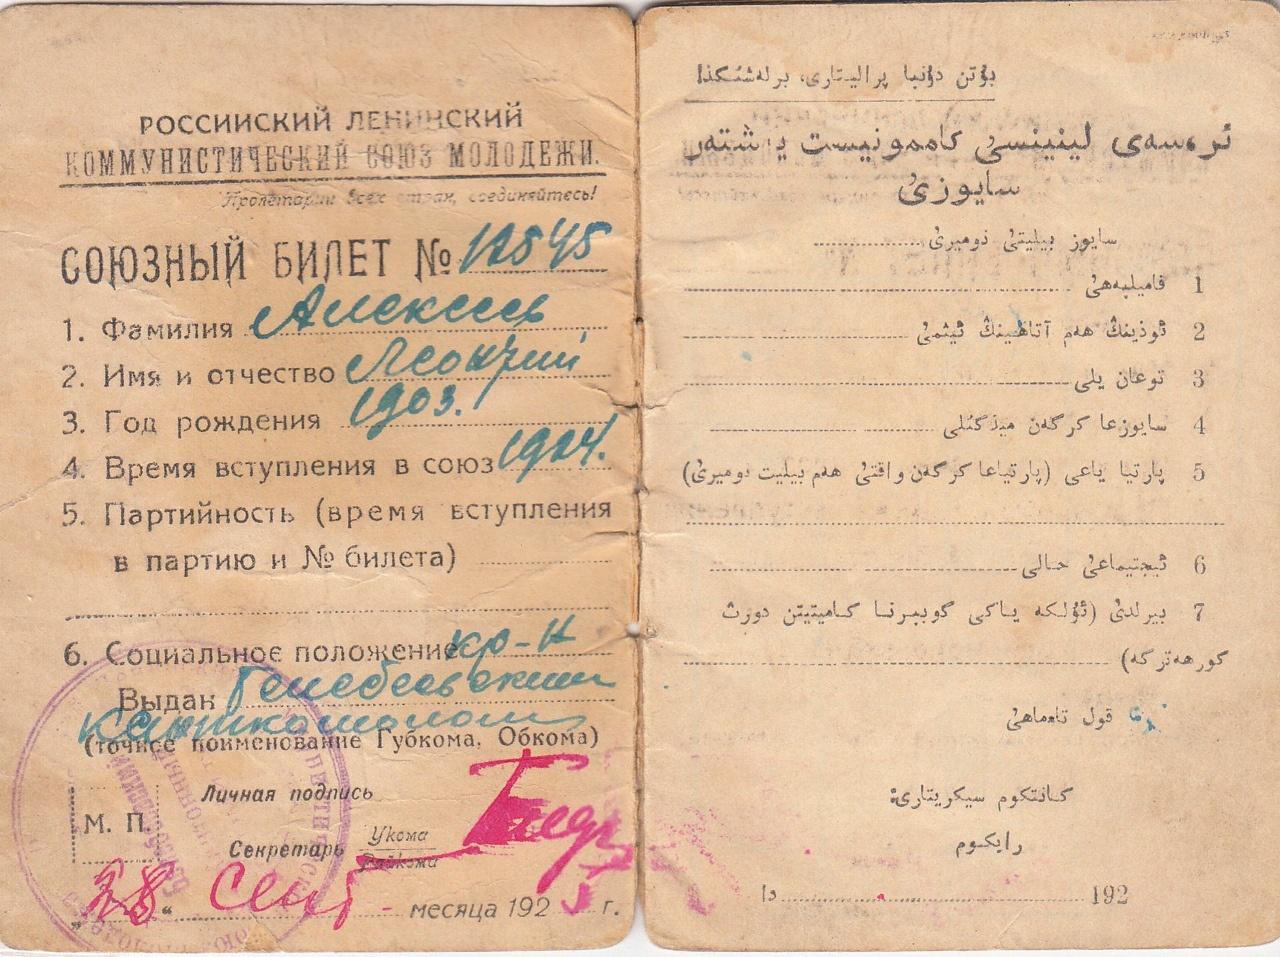 РОССИИСКИЙ ЛЕНИНСКИЙ
КОММУНИСТИЧЕСКИЙ СОЮЗ МОЛОДЕЖИ.
Пролетарии всех стран, соединяйтесь!
СОЮЗНЫЙ БИЛЕТ № 12545
1. Фамилия Алексеев
2. Имя и отчество Леонтий
3. Год рождения 1903.
4. Время вступления в союз 1924.
5. Партийность (время вступления
в партию и № билета)
6. Социальное положение кр-н
Выдан
Канткомолом
(точное поименование Губкома, Обкома)
Личная подпись
М. П.
Секретарь Укома
Райкома
"28" Сент - месяца 1925 г.
بۇتن دۇنيا پراليتارى، برلەشئكذا
لينينسئ كاممونيست
سايوزئ
سايوز بيليتئ نوميرئ
1 فاميليەهئ
2 ئوذينڭ هەم آتاهينڭ ئيثمئ
3 توعان يلى
4 سايوزعا كرگەن ميذگئلى
5 پارتيا ياعى (پارتياعا كرگەن واقتئ هەم بيليت نوميرئ)
6 ئيجتيماعئ حالى
7 بيرلدئ (ئۇلكە ياكى گوبيرنا كاميتيتن دورث
كورهەترگە)
قول تامعاهئ
كانتكوم سيكريتارئ
رايكوم
192 دا